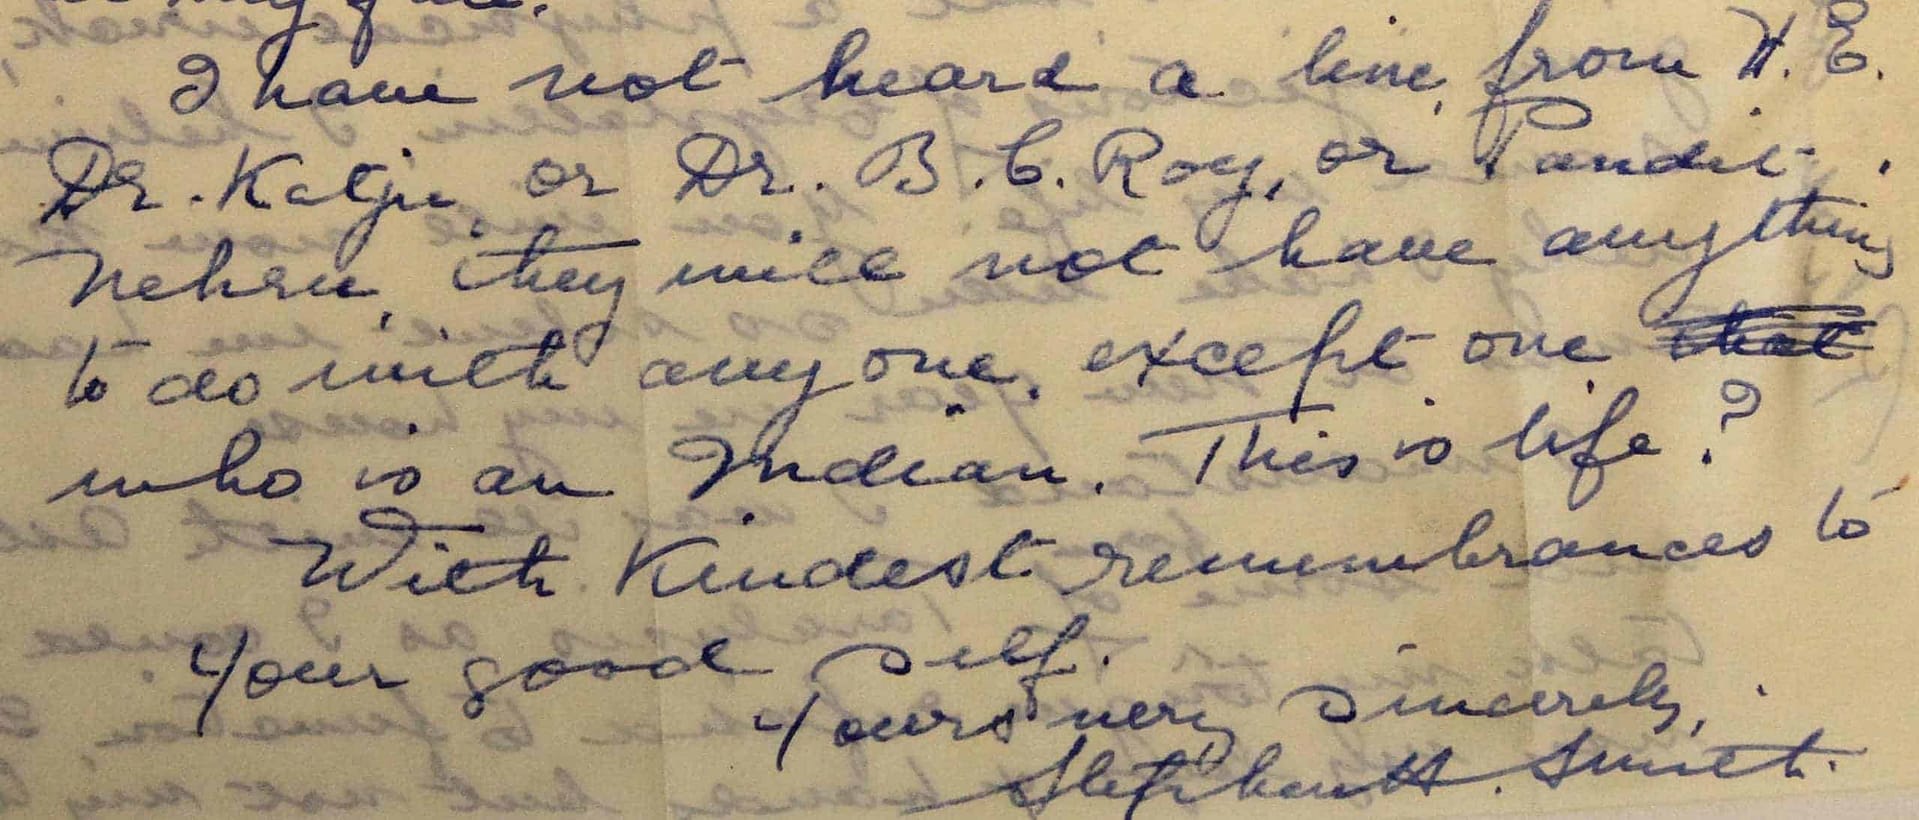 I have not heard a line, from H.E.
Dr. Katju, or Dr. B.C. Roy, or Pandit
Nehru, they will not have anything
to do with any one, except one that
who is an Indian. This is life?
With Kindest remembrances to
Your good self.
Yours very sincerely,
Stephen H. Smith.